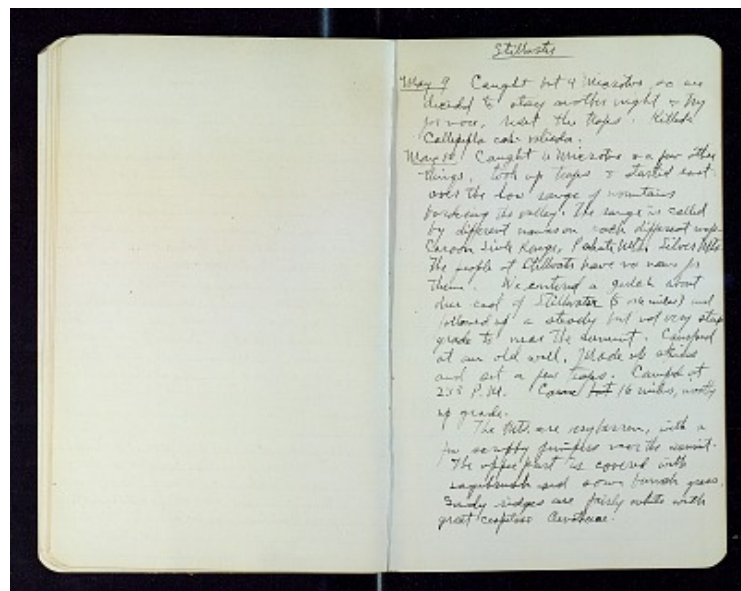 Stillwater
May 9 Caught but 4 Microtus so we
decided to stay another night & try
for more, reset the traps. Killed a
Callipepla cal. valicola.
May 10 Caught 12 Microtus & a few other
things. Took up traps & started east
over the low range of mountains
bordering the valley. The range is called
by different names on each different map
Carson Sink Range, Pahute Mts. Silver Mts.
The people at Stillwater have no name for
them. We entered a gulch about
due east of Stillwater (5 or 6 miles) and
followed up a steady but not very steep
grade to near the summit. Camped
at an old well. Made up skins
and set a few traps. Camped at
P.M. Came but 16 miles, mostly
up grade.
The Mts. are very barren, with a
few scrubby junipers near the summit.
The upper part is covered with
sagebrush and some bunch grass.
Sandy ridges are fairly white with
great